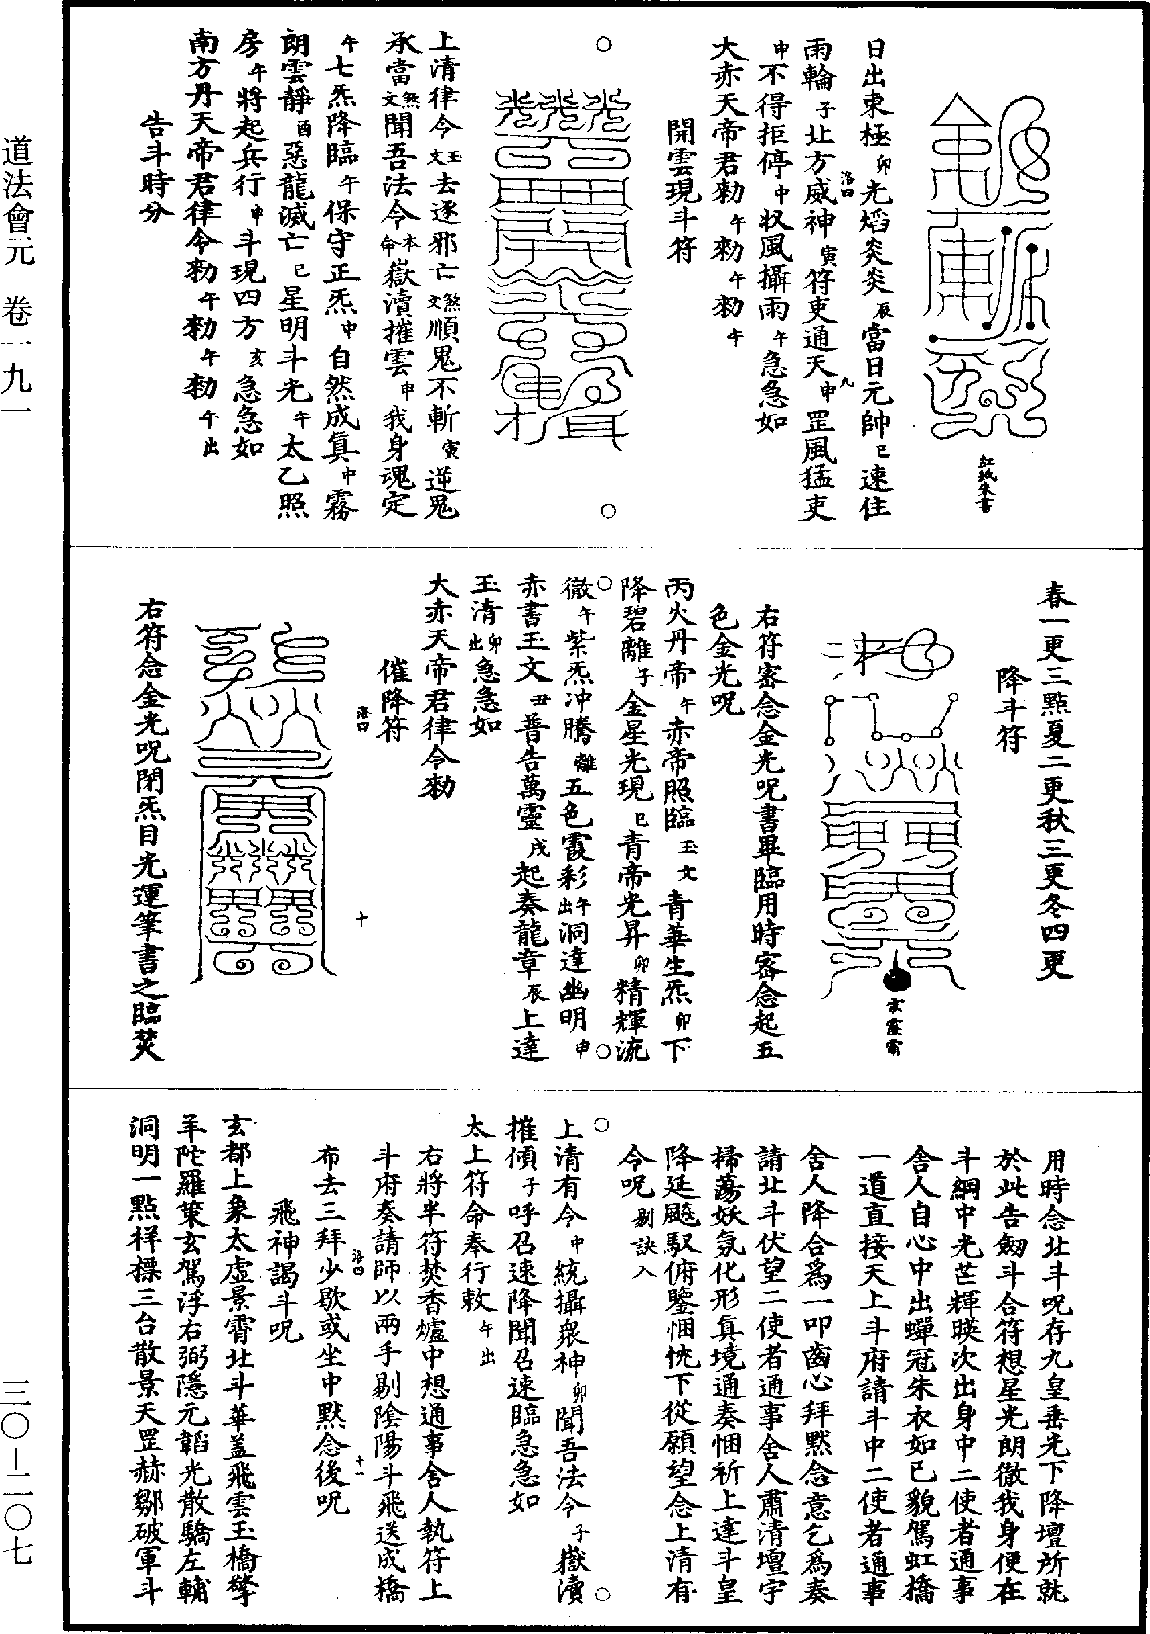 紅紙朱書
日出東極卯光熖炎炎辰當日元帥巳速住
雨輪子北方威神寅符吏通天申罡風猛吏
申不得拒停申収風攝雨午急急如
大赤天帝君勑午勑午勑午
開雲現斗符
上清律令玉文去逐邪亡煞文順鬼不斬寅逆鬼
承當煞文聞吾法令本命嶽瀆摧雲申我身魂定
午七炁降臨午保守正炁申自然成真中霧
朗雲靜酉惡龍滅亡巳星明斗光午太乙照
房午將起兵行申斗現四方亥急急如
南方丹天帝君律令勑午勑午勑午出
告斗時分
春一更三點夏二更秋三更冬四更
降斗符
右符密念金光呪書畢臨用時密念起五
色金光呪
丙火丹帝午赤帝照臨玉文青華生炁卯下
降碧離子金星光現巳青帝光昇卯精輝流
徹午紫炁冲騰離五色霞彩午出洞達幽明申
赤書玉文丑普告萬靈戌起奏龍章辰上達
玉清卯出急急如
大赤天帝君律令勑
催降符
右符念金光呪閉炁目光運筆書之臨焚
用時念北斗呪存九皇垂光下降壇所就
於此告劒斗合符想星光朗徹我身便在
斗綱中光芒輝暎次出身中二使者通事
舍人自心中出蟬冠朱衣如已貌駕虹橋
一道直接天上斗府請斗中二使者通事
舍人降合為一叩齒心拜默念意乞為奏
請北斗伏望二使者通事舍人肅清壇宇
掃蕩妖氛化形真境通奏悃祈上達斗皇
降廷飈馭俯鑒悃忱下從願望念上清有
令呪剔訣入
上清有令中統攝衆神卯聞吾法令子嶽瀆
摧傾子呼召速降聞召速臨急急如
太上符命奉行敕午出
右將半符焚香爐中想通事舍人執符上
斗府奏請師以兩手剔陰陽斗飛送成橋
布去三拜少歇或坐中默念後呪
飛神謁斗呪
玄都上象太虛景霄北斗華蓋飛雲玉橋擎
羊陀羅策玄駕浮右弼隱元韜光散驕左輔
洞明一點祥摽三台散景天罡赫鄒破軍斗
道法會元 卷一九一
三〇—二〇七